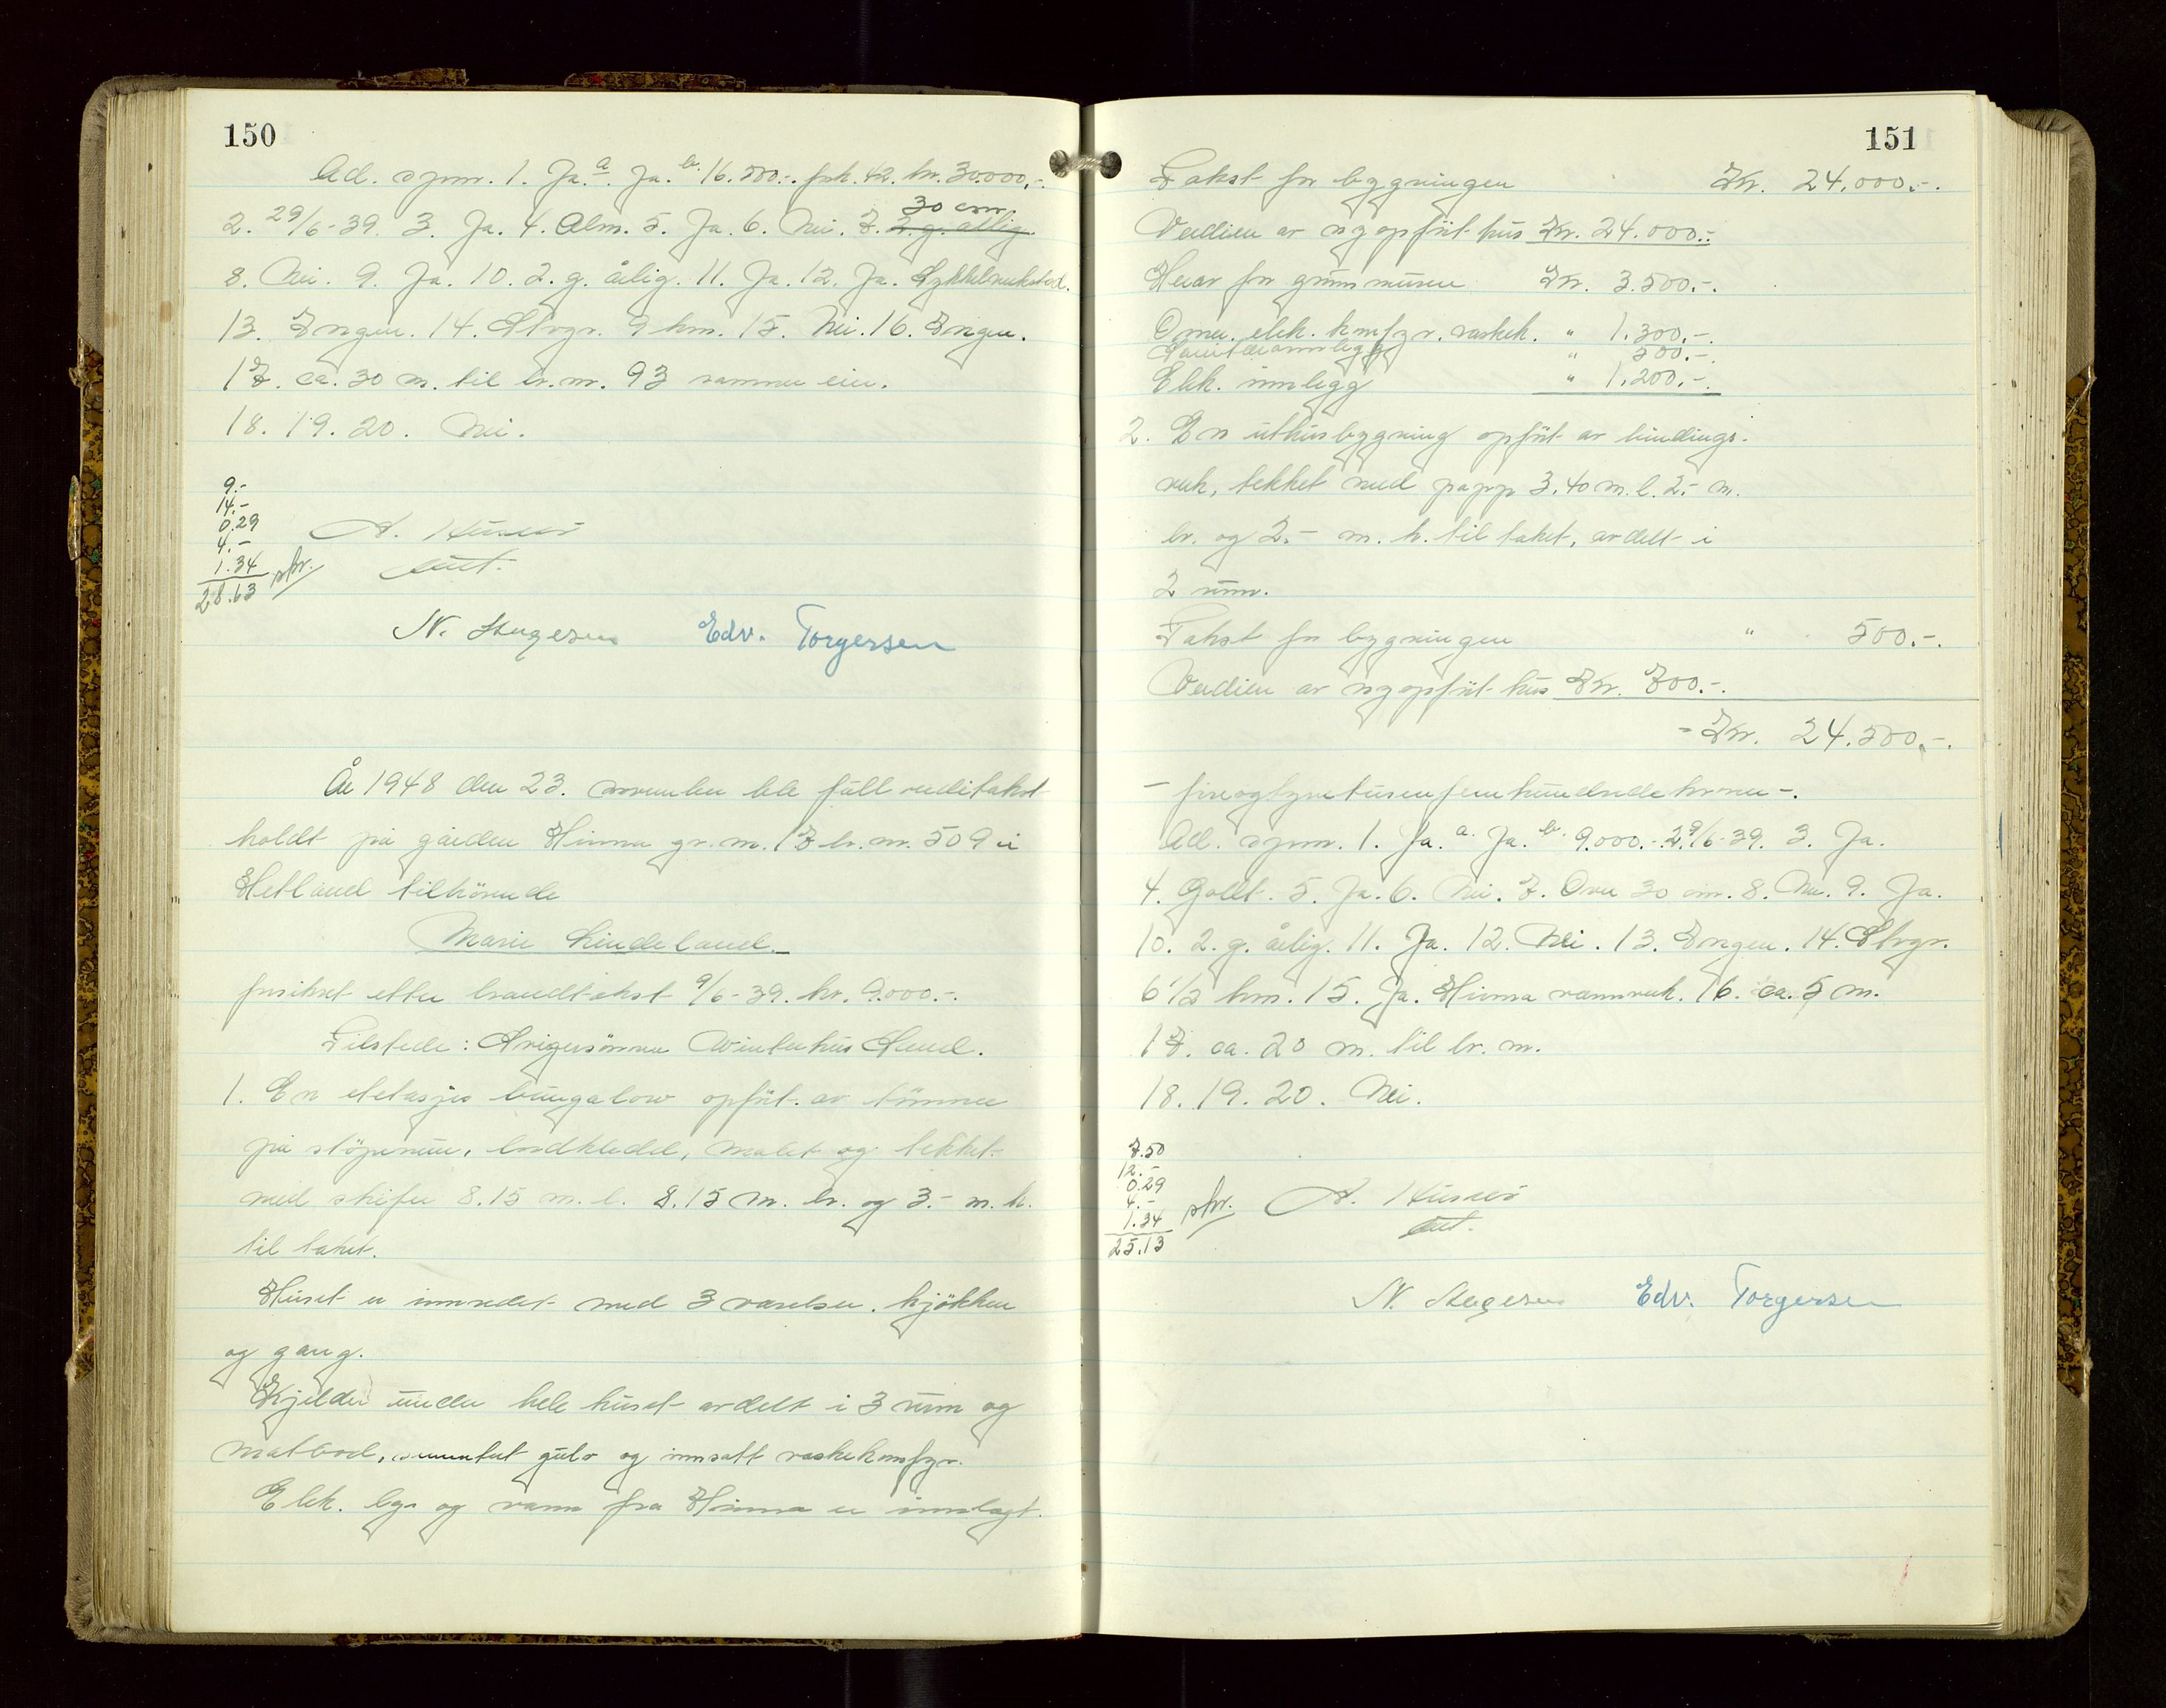 150
Ad. spm. 1. Ja. a. Ja. b. 16.500.- fork. 42. kr. 30.000,-.
2. 29/6-39. 3. Ja. 4. Alm. 5. Ja. 6. Nei. 7. 2. g. årlig. 30 cm.
8. Nei. 9. Ja. 10. 2. g. årlig. 11. Ja. 12. Ja. Sykkelverksted.
13. Ingen. 14. Stvgr. 9 km. 15. Nei. 16. Ingen.
17. ca. 30 m. til br. nr. 93 samme eier.
18. 19. 20. Nei.
9.-
14.-
0.29
4.-
1.34
28.63 skr.
A. Husebø
lent.
N. Stegesen Edv. Torgersen
År 1948 den 23. november ble full verditakst
holdt på gården Hinna gr. nr. 17 br. nr. 509 i
Hetland tilhörende
Marie Lindeland.
forsikret etter branntakst 9/6-39. kr. 9.000.-.
Tilstede: Svigersönnen Winterhus Sund.
1. En etetasjes bungalow opfört av tömmer
på stöpemur, bordkledd, malt og tekket
med skifer 8.15 m. l. 8.15 m. br. og 3.- m. h.
til taket.
Huset er innredet med 3 værelser, kjökken
og gang.
Kjelder under hele huset avdelt i 3 rum og
matbod, sementert gulv og innsatt vaskekomfyr.
Elek. lys og vann fra Hinna er innlagt.
151
Takst for bygningen Kr. 24.000.-.
Verdien av nyopfört hus Kr. 24.000.-.
Herav for grunnmuren Kr. 3.500.-.
Ovner, elek. komfyr. vaskek. " 1.300.-.
Sanitæranlegg " 500.-.
Elek. innlegg " 1.200.-.
2. En uthusbygning opfört av bindings-
verk, tekket med papp 3.40 m. l. 2.- m.
br. og 2.- m. h. til taket, avdelt i
2 rum.
Takst for bygningen " 500.-.
Verdien av nyopfört hus Kr. 700.-.
- Kr. 24.500.-.
- fireogtyvetusenfemhundrede kroner -.
Ad. spm. 1. Ja. a. Ja. b. 9.000.- 2. 9/6-39. 3. Ja.
4. Godt. 5. Ja. 6. Nei. 7. Over 30 cm. 8. Nei. 9. Ja.
10. 2. g. årlig. 11. Ja. 12. Nei. 13. Ingen. 14. Stvgr.
6 1/2 km. 15. Ja. Hinna vannverk. 16. ca. 5 m.
17. ca. 20 m. til br. nr.
18. 19. 20. Nei.
7.50
12.-
0.29
4.-
1.34
25.13 skr.
A. Husebø
lent.
N. Stegesen Edv. Torgersen